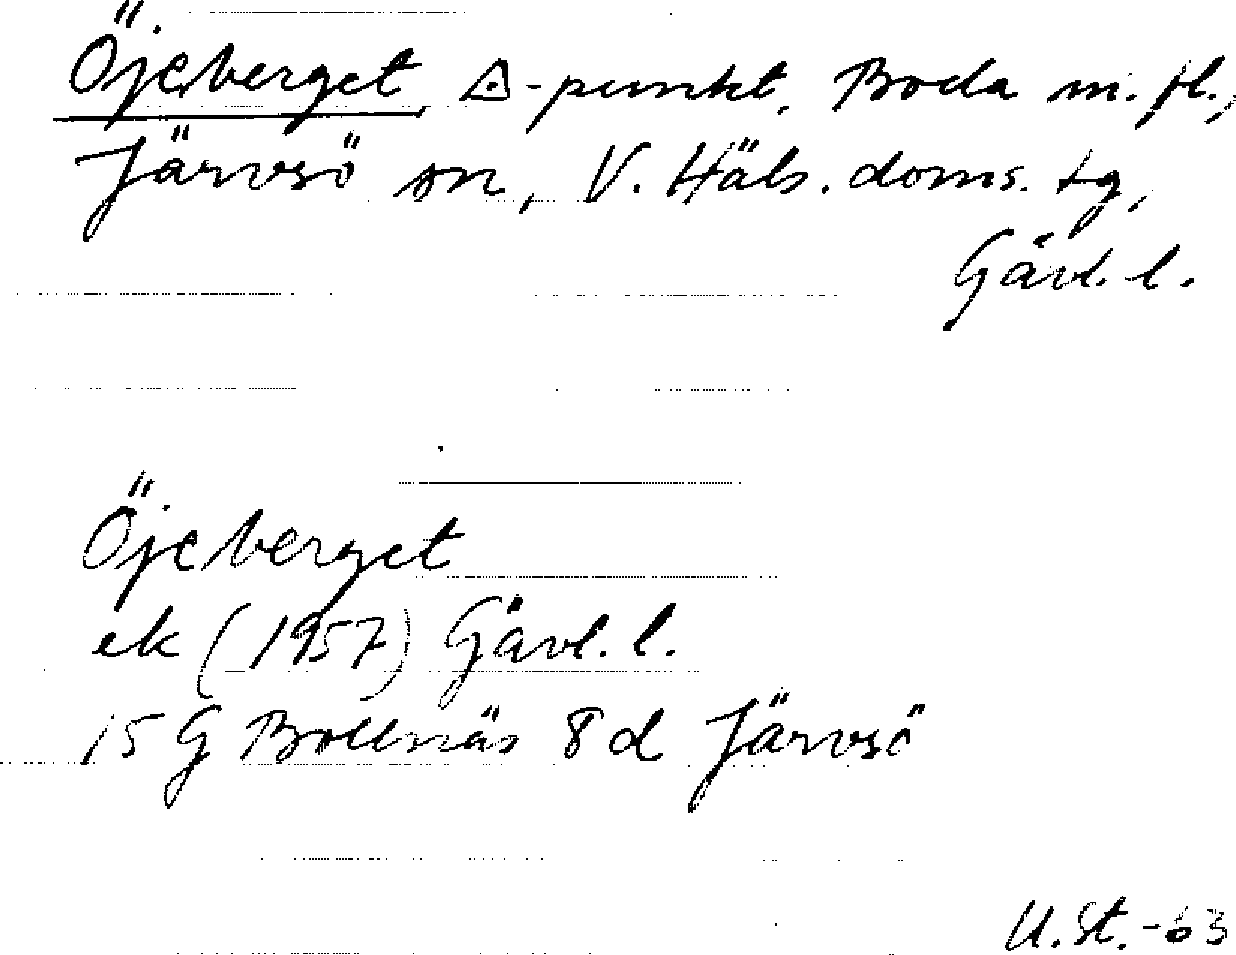 Öjeberget, △-punkt, Boda m. fl.,
Järvsö sn, V. Häls. doms. tg,
Gävl. l.
Öjeberget
ek (1957) Gävl. l.
15 G Bollnäs 8 d Järvsö
U. St. -63